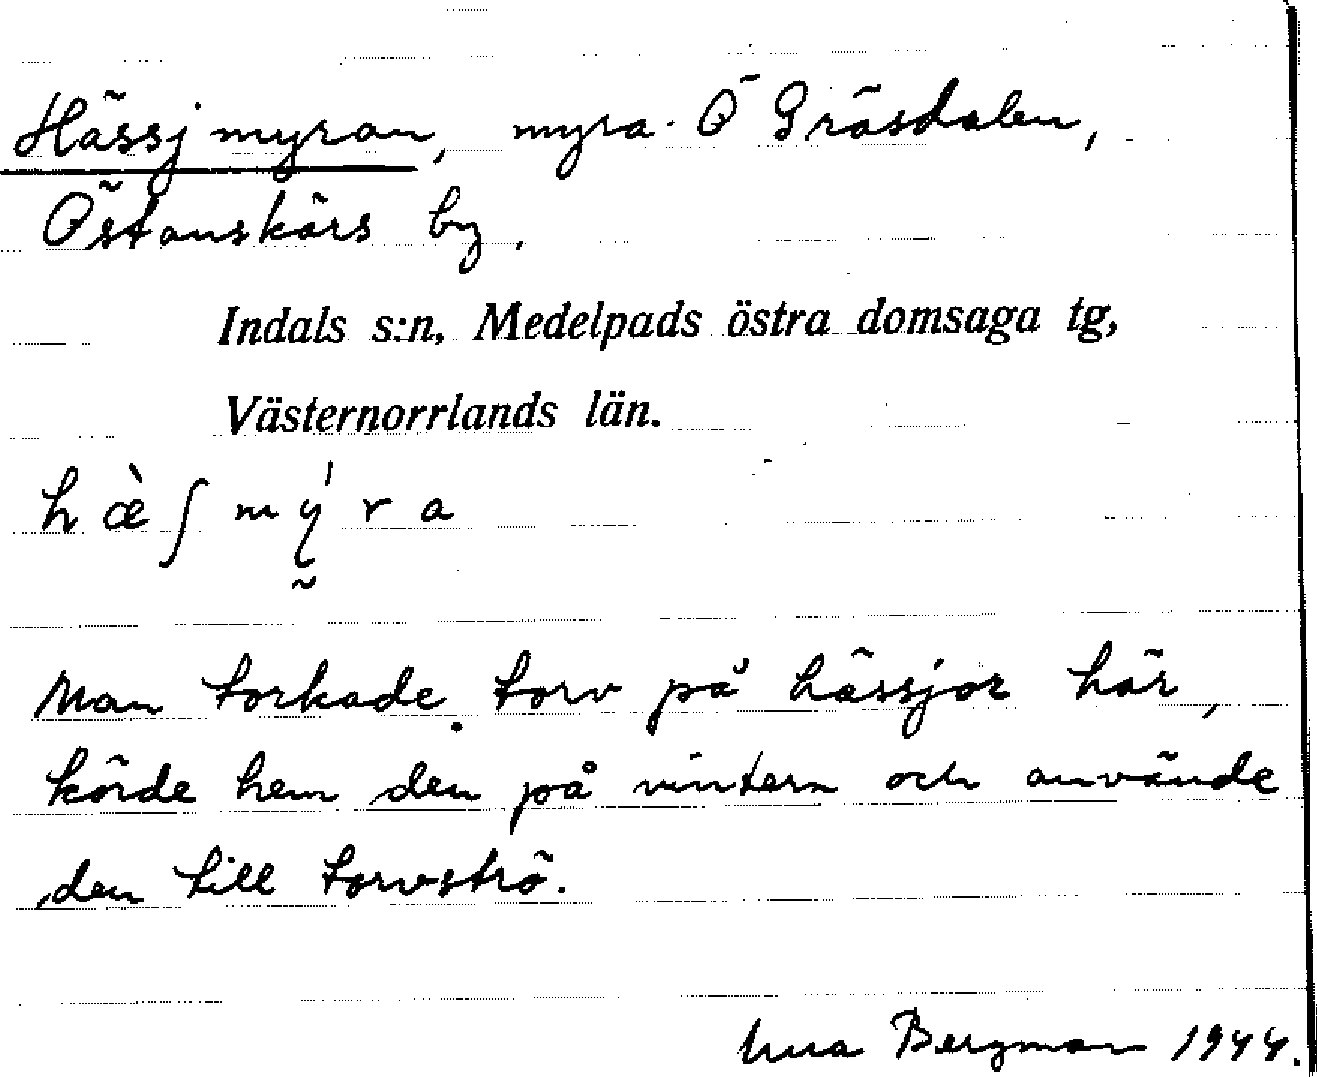 Hässjmyran, myra. Ö Gräsdalen,
Östanskärs by.
Indals s:n, Medelpads östra domsaga tg,
Västernorrlands län.
hæ̀ʃmý̰ra
Man torkade torv på hässjor här,
körde hem den på vintern och använde
den till torvströ.
Bergman 1944.